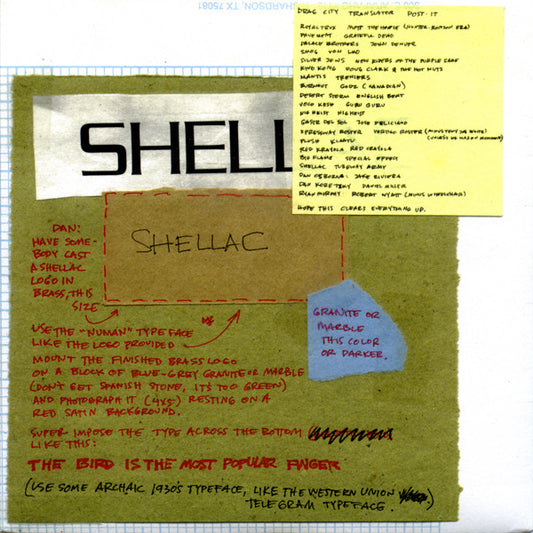 CHARDSON, TX 75081
DRAG CITY TRANSLATOR POST-IT
ROYAL TRUX MOTT THE HOOPLE (HUNTER-RONSON ERA)
PAVEMENT GRATEFUL DEAD
PALACE BROTHERS JOHN DENVER
SMOG VON LMO
SILVER JEWS NEW RIDERS OF THE PURPLE SAGE
KING KONG DOUG CLARK & THE HOT NUTS
MANTIS TRENIERS
BURNOUT GODZ (CANADIAN)
DESERT STORM ENGLISH BEAT
GURU GURU
GASTR DEL SOL JOSE FELICIANO
XPRESSWAY ROSTER
PLUSH KLAATU
RED KRAYOLA RED CRAYOLA
BIG FLAME SPECIAL EFFECT
SHELLAC TUBEWAY ARMY
DAN OSBORNE: JAKE RIVIERA
DAN KORETZKY DAVID MILLER
RIAN MURPHY ROBERT WYATT (MINUS WHEELCHAIR)
HOPE THIS CLEARS EVERYTHING UP.
SHELL
SHELLAC
DAN:
HAVE SOME-
BODY CAST
A SHELLAC
LOGO IN
BRASS, THIS
SIZE
GRANITE OR
MARBLE
THIS COLOR
OR DARKER.
USE THE "NUMAN" TYPEFACE
LIKE THE LOGO PROVIDED
MOUNT THE FINISHED BRASS LOGO
ON A BLOCK OF BLUE-GREY GRANITE OR MARBLE
(DON'T GET SPANISH STONE, IT'S TOO GREEN)
AND PHOTOGRAPH IT (4x5) RESTING ON A
RED SATIN BACKGROUND.
SUPER IMPOSE THE TYPE ACROSS THE BOTTOM
LIKE THIS:
THE BIRD IS THE MOST POPULAR FINGER
(USE SOME ARCHAIC 1930'S TYPEFACE, LIKE THE WESTERN UNION
TELEGRAM TYPEFACE.)